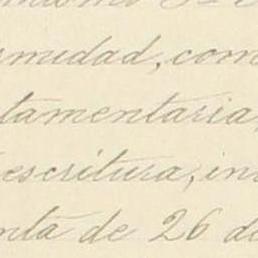 rmudad, com
tamentaria,
escritura, in
nta de 26 d